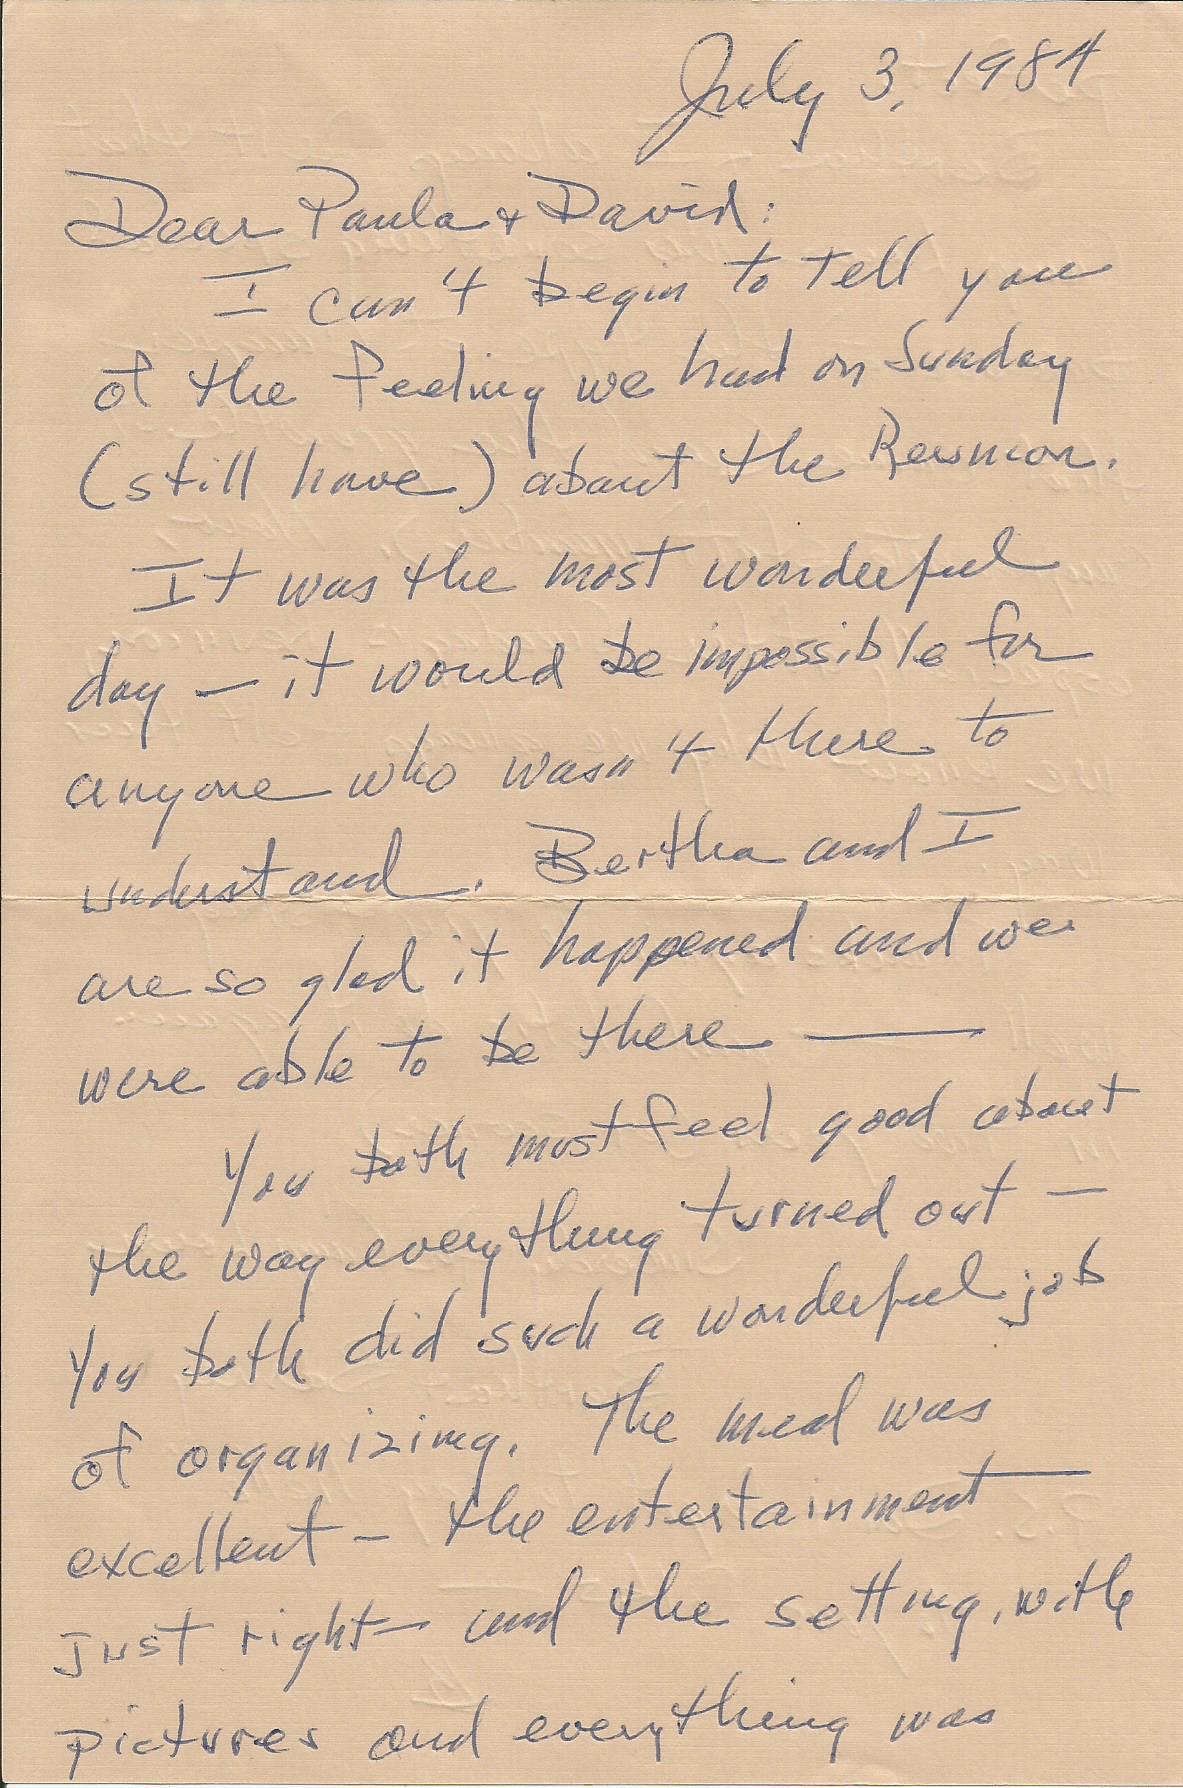 July 3, 1984
Dear Paula & David:
I can't begin to tell you
of the feeling we had on Sunday
(still have) about the Reunion.
It was the most wonderful
day — it would be impossible for
anyone who wasn't there to
understand. Bertha and I
are so glad it happened and we
were able to be there —
You both must feel good about
the way everything turned out —
You both did such a wonderful job
of organizing. The meal was
excellent — the entertainment
just right — and the setting, with
pictures and everything was